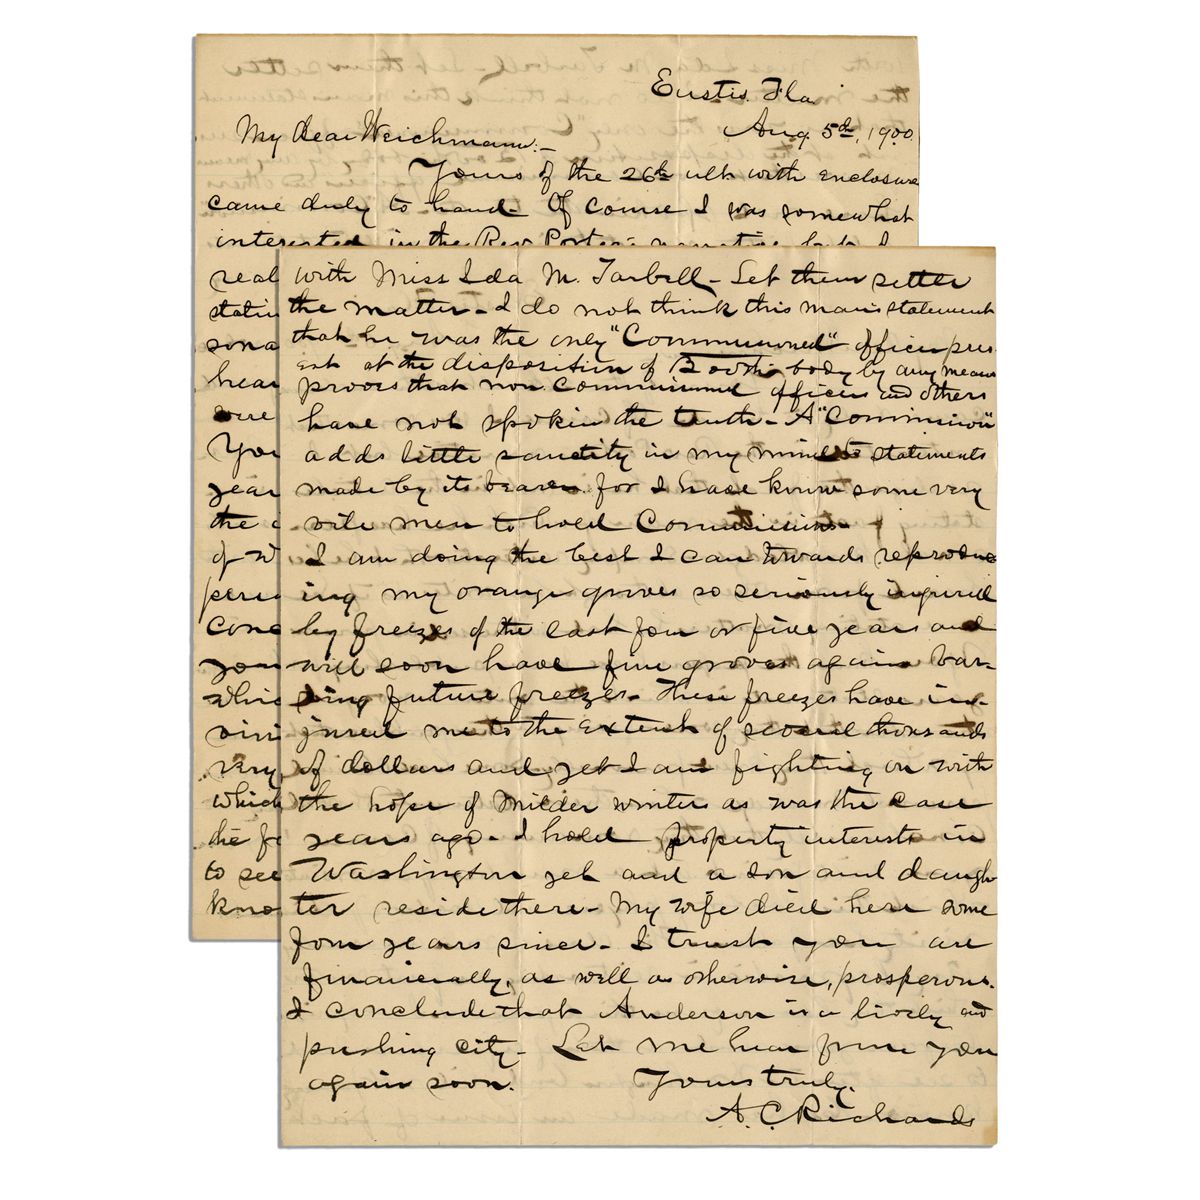 Eustis. Fla
Aug. 5th, 1900.
My dear Weichmann:-
Yours of the 26th ult with enclosure
came duly to hand. Of course I was somewhat
interested in the Rev. Porter's narrative but I
real
statin
son a
hear
were
You
year
the
of W
perso
conc
you
whic
very
which
the fa
to see
know
with Miss Ida M. Tarbell - Let them settle
the matter - I do not think this man's statement
that he was the only "Commissioned" officer pres-
ent at the disposition of Booth's body by any means
proves that non commissioned officers and others
have not spoken the truth - A "Commission"
adds little sanctity in my mind to statements
made by its bearer for I have known some very
vile men to hold Commissions -
I am doing the best I can towards reproduc
ing my orange groves so seriously injured
by freezes of the last four or five years and
will soon have fine groves again bar-
ring future freezes - These freezes have in-
jured me to the extent of several thousands
of dollars and yet I am fighting on with
the hope of milder winters as was the case
years ago - I hold property interests in
Washington yet and a son and daugh
ter reside there - My wife died here some
four years since - I trust you are
financially, as well as otherwise, prosperous.
I conclude that Anderson is a lively and
pushing city - Let me hear from you
again soon.
Yours truly.
A. C. Richards